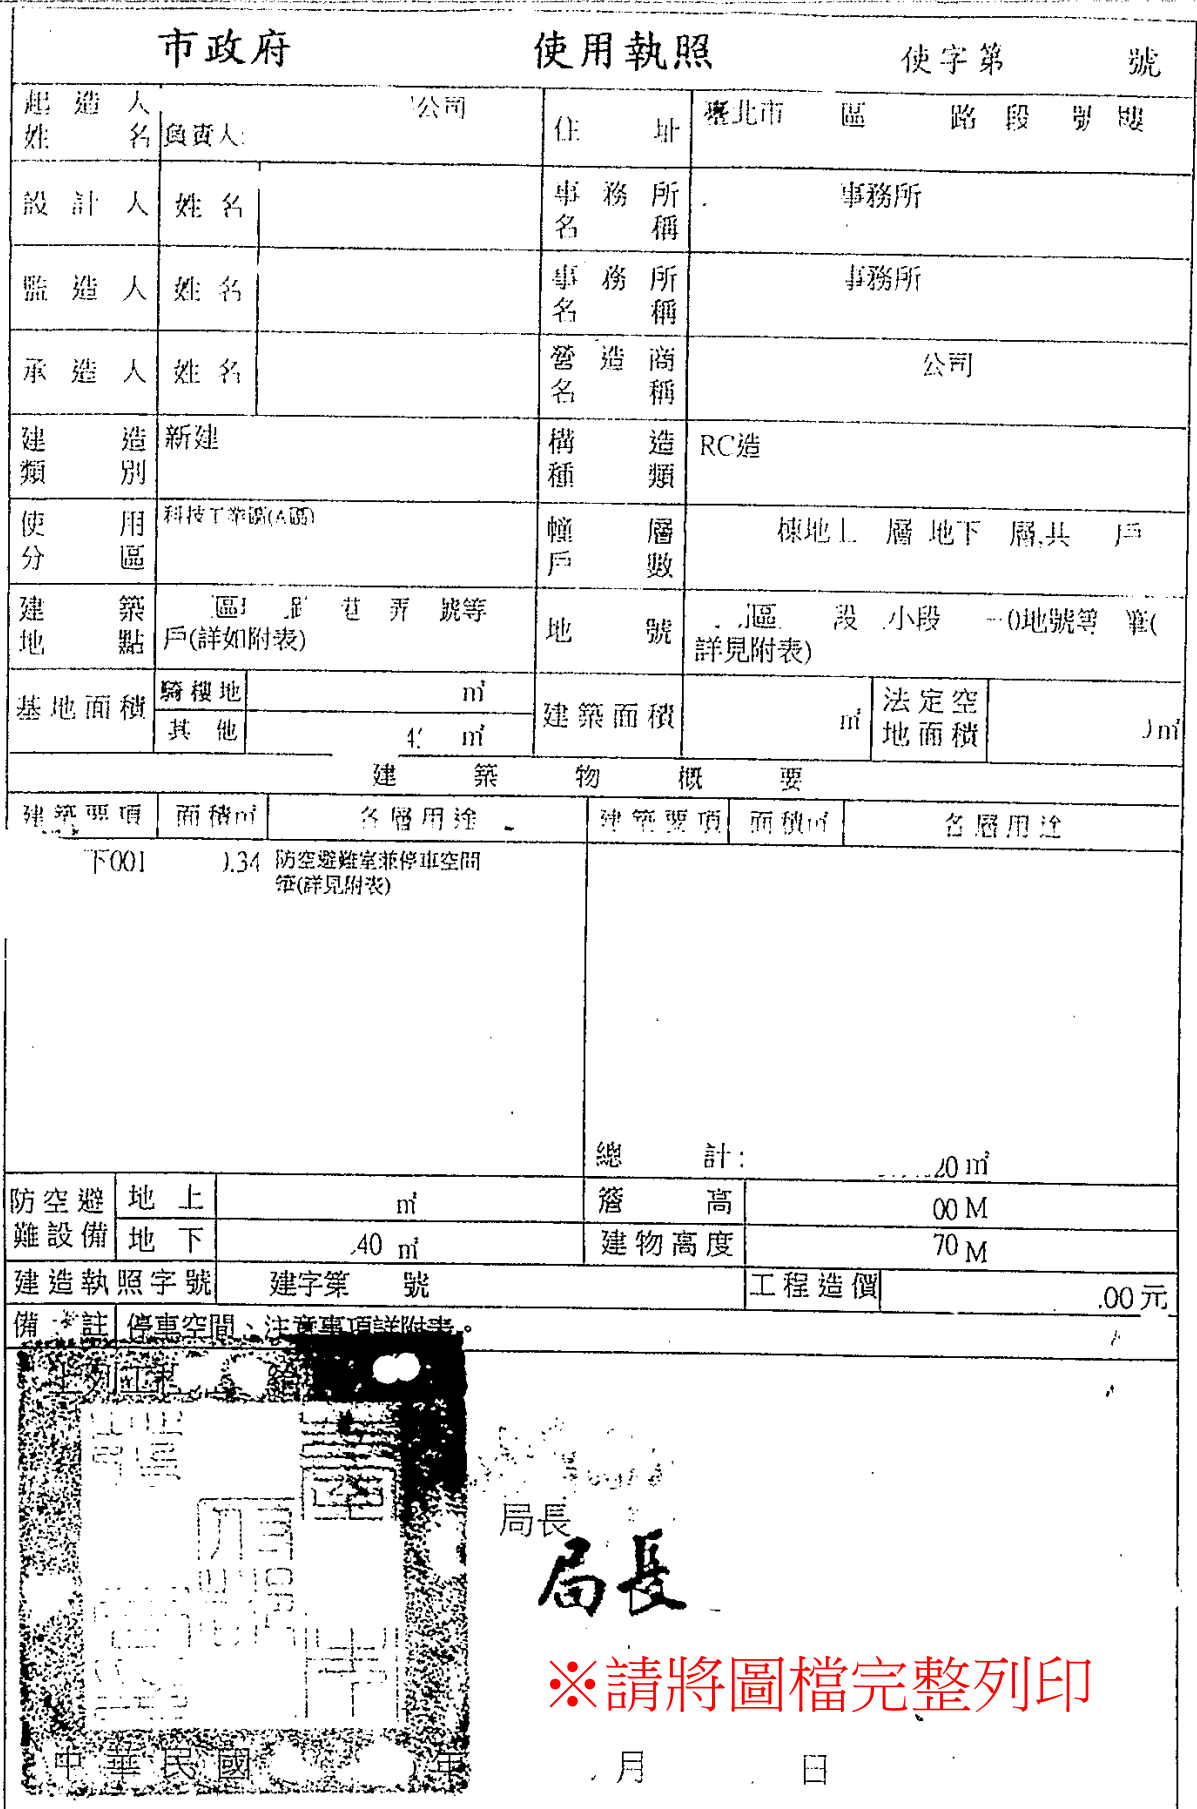 市政府 使用執照 使字第 號
起造人姓名 公司 負責人: 住址 臺北市 區 路 段 號 樓
設計人 姓名 事務所名稱 事務所
監造人 姓名 事務所名稱 事務所
承造人 姓名 營造商名稱 公司
建造類別 新建 構造種類 RC造
使用分區 科技工業區(A區) 幢層戶數 棟地上 層 地下 層,共 戶
建築地點 區 路 巷 弄 號等
戶(詳如附表)
地號 區 段 小段 0地號等 筆(
詳見附表)
基地面積 騎樓地 ㎡ 建築面積 ㎡ 法定空地面積 ㎡
其他 4 ㎡
建築物概要
建築要項 面積㎡ 各層用途 建築要項 面積㎡ 各層用途
下001 .34 防空避難室兼停車空間
等(詳見附表)
總計: 20 ㎡
防空避難設備 地上 ㎡ 簷高 00 M
地下 .40 ㎡ 建物高度 70 M
建造執照字號 建字第 號 工程造價 .00元
備註 停車空間、注意事項詳附表。
上列工程 給
局長
局長
※請將圖檔完整列印
中華民國 年 月 日